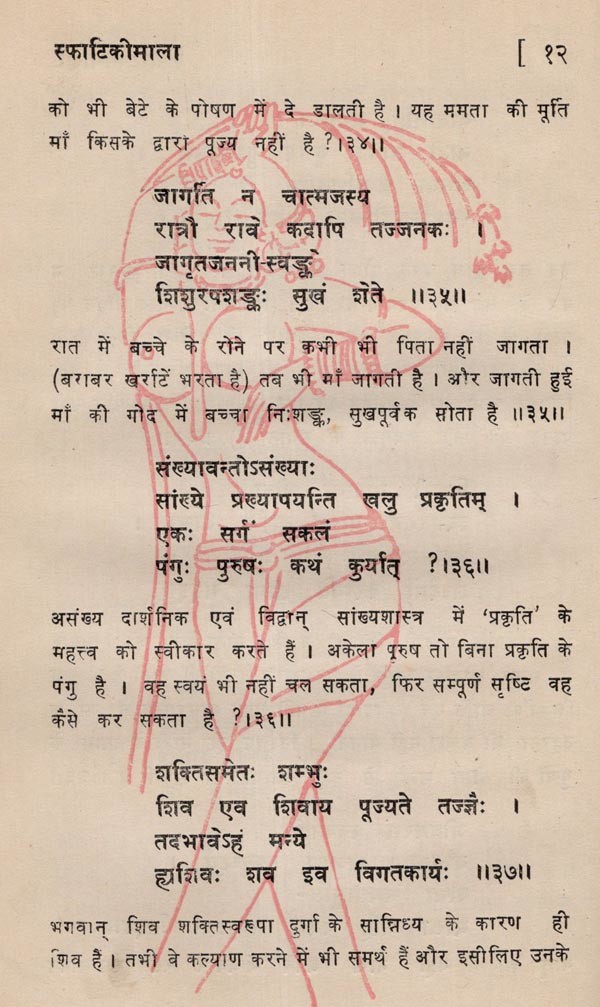 स्फाटिकीमाला [ १२
को भी बेटे के पोषण में दे डालती है । यह ममता की मूर्ति
माँ किसके द्वारा पूज्य नहीं है ?।३४।।
जागर्ति न चात्मजस्य
रात्रौ रावे कदापि तज्जनकः ।
जागृतजननी-स्वङ्के
शिशुरपशङ्कः सुखं शेते ।।३५।।
रात में बच्चे के रोने पर कभी भी पिता नहीं जागता ।
(बराबर खर्राटें भरता है) तब भी माँ जागती है । और जागती हुई
माँ की गोद में बच्चा निःशङ्क, सुखपूर्वक सोता है ।।३५।।
संख्यावन्तोऽसंख्याः
सांख्ये प्रख्यापयन्ति खलु प्रकृतिम् ।
एकः सर्गं सकलं
पंगुः पुरुषः कथं कुर्यात् ?।३६।।
असंख्य दार्शनिक एवं विद्वान् सांख्यशास्त्र में 'प्रकृति' के
महत्त्व को स्वीकार करते हैं । अकेला पुरुष तो बिना प्रकृति के
पंगु है । वह स्वयं भी नहीं चल सकता, फिर सम्पूर्ण सृष्टि वह
कैसे कर सकता है ?।३६।।
शक्तिसमेतः शम्भुः
शिव एव शिवाय पूज्यते तज्ज्ञैः ।
तदभावेऽहं मन्ये
ह्यशिवः शव इव विगतकार्यः ।।३७।।
भगवान् शिव शक्तिस्वरूपा दुर्गा के सान्निध्य के कारण ही
शिव हैं । तभी वे कल्याण करने में भी समर्थ हैं और इसीलिए उनके